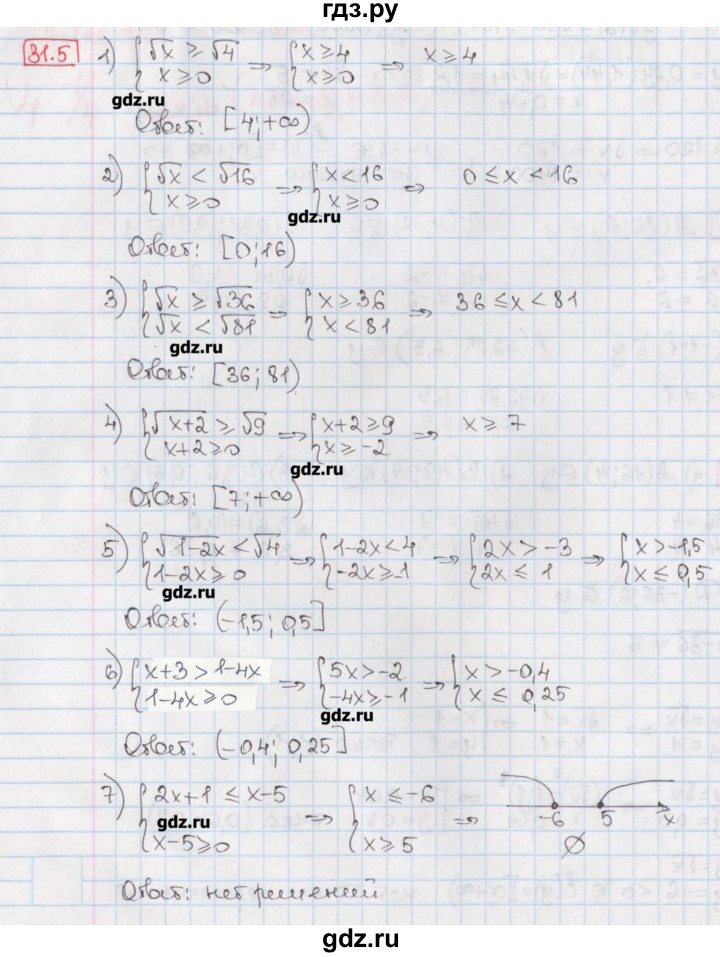 гдз.ру
31.5 1) {√x ≥ √4 ⇒ {x ≥ 4 ⇒ x ≥ 4
x ≥ 0 x ≥ 0
gdz.ru
Ответ: [4; +∞)
2) {√x < √16 ⇒ {x < 16 ⇒ 0 ≤ x < 16
x ≥ 0 x ≥ 0
gdz.ru
Ответ: [0; 16)
3) {√x ≥ √36 ⇒ {x ≥ 36 ⇒ 36 ≤ x < 81
√x < √81 x < 81
gdz.ru
Ответ: [36; 81)
4) {√x+2 ≥ √9 ⇒ {x+2 ≥ 9 ⇒ x ≥ 7
x+2 ≥ 0 x ≥ -2
gdz.ru
Ответ: [7; +∞)
5) {√1-2x < √4 ⇒ {1-2x < 4 ⇒ {2x > -3 ⇒ {x > -1,5
1-2x ≥ 0 -2x ≥ -1 2x ≤ 1 x ≤ 0,5
gdz.ru
Ответ: (-1,5; 0,5]
6) {x+3 > 1-4x ⇒ {5x > -2 ⇒ {x > -0,4
1-4x ≥ 0 -4x ≥ -1 x ≤ 0,25
gdz.ru
Ответ: (-0,4; 0,25]
7) {2x+1 ≤ x-5 ⇒ {x ≤ -6 ⇒ -6 5 x
gdz.ru
x-5 ≥ 0 x ≥ 5 ∅
Ответ: нет решений
gdz.ru